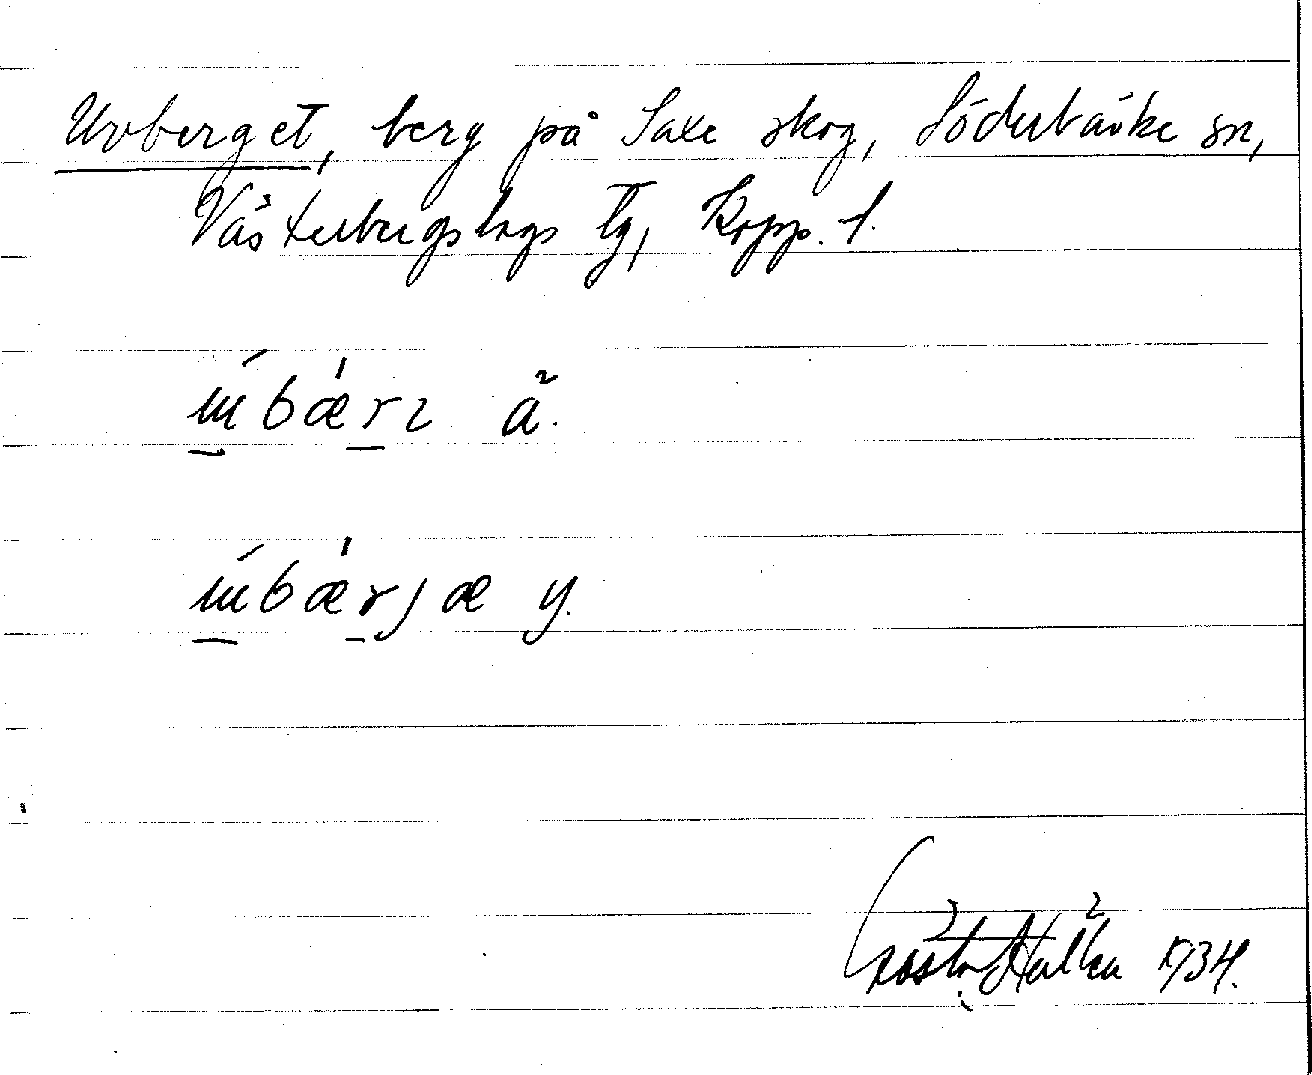 Uvberget, berg på Saxe skog, Söderbärke sn,
Västerbergslags tg, Kopp. l.
ɯ́bǽrɪ ä.
ɯ́bǽrjæ y.
Gösta 1934.